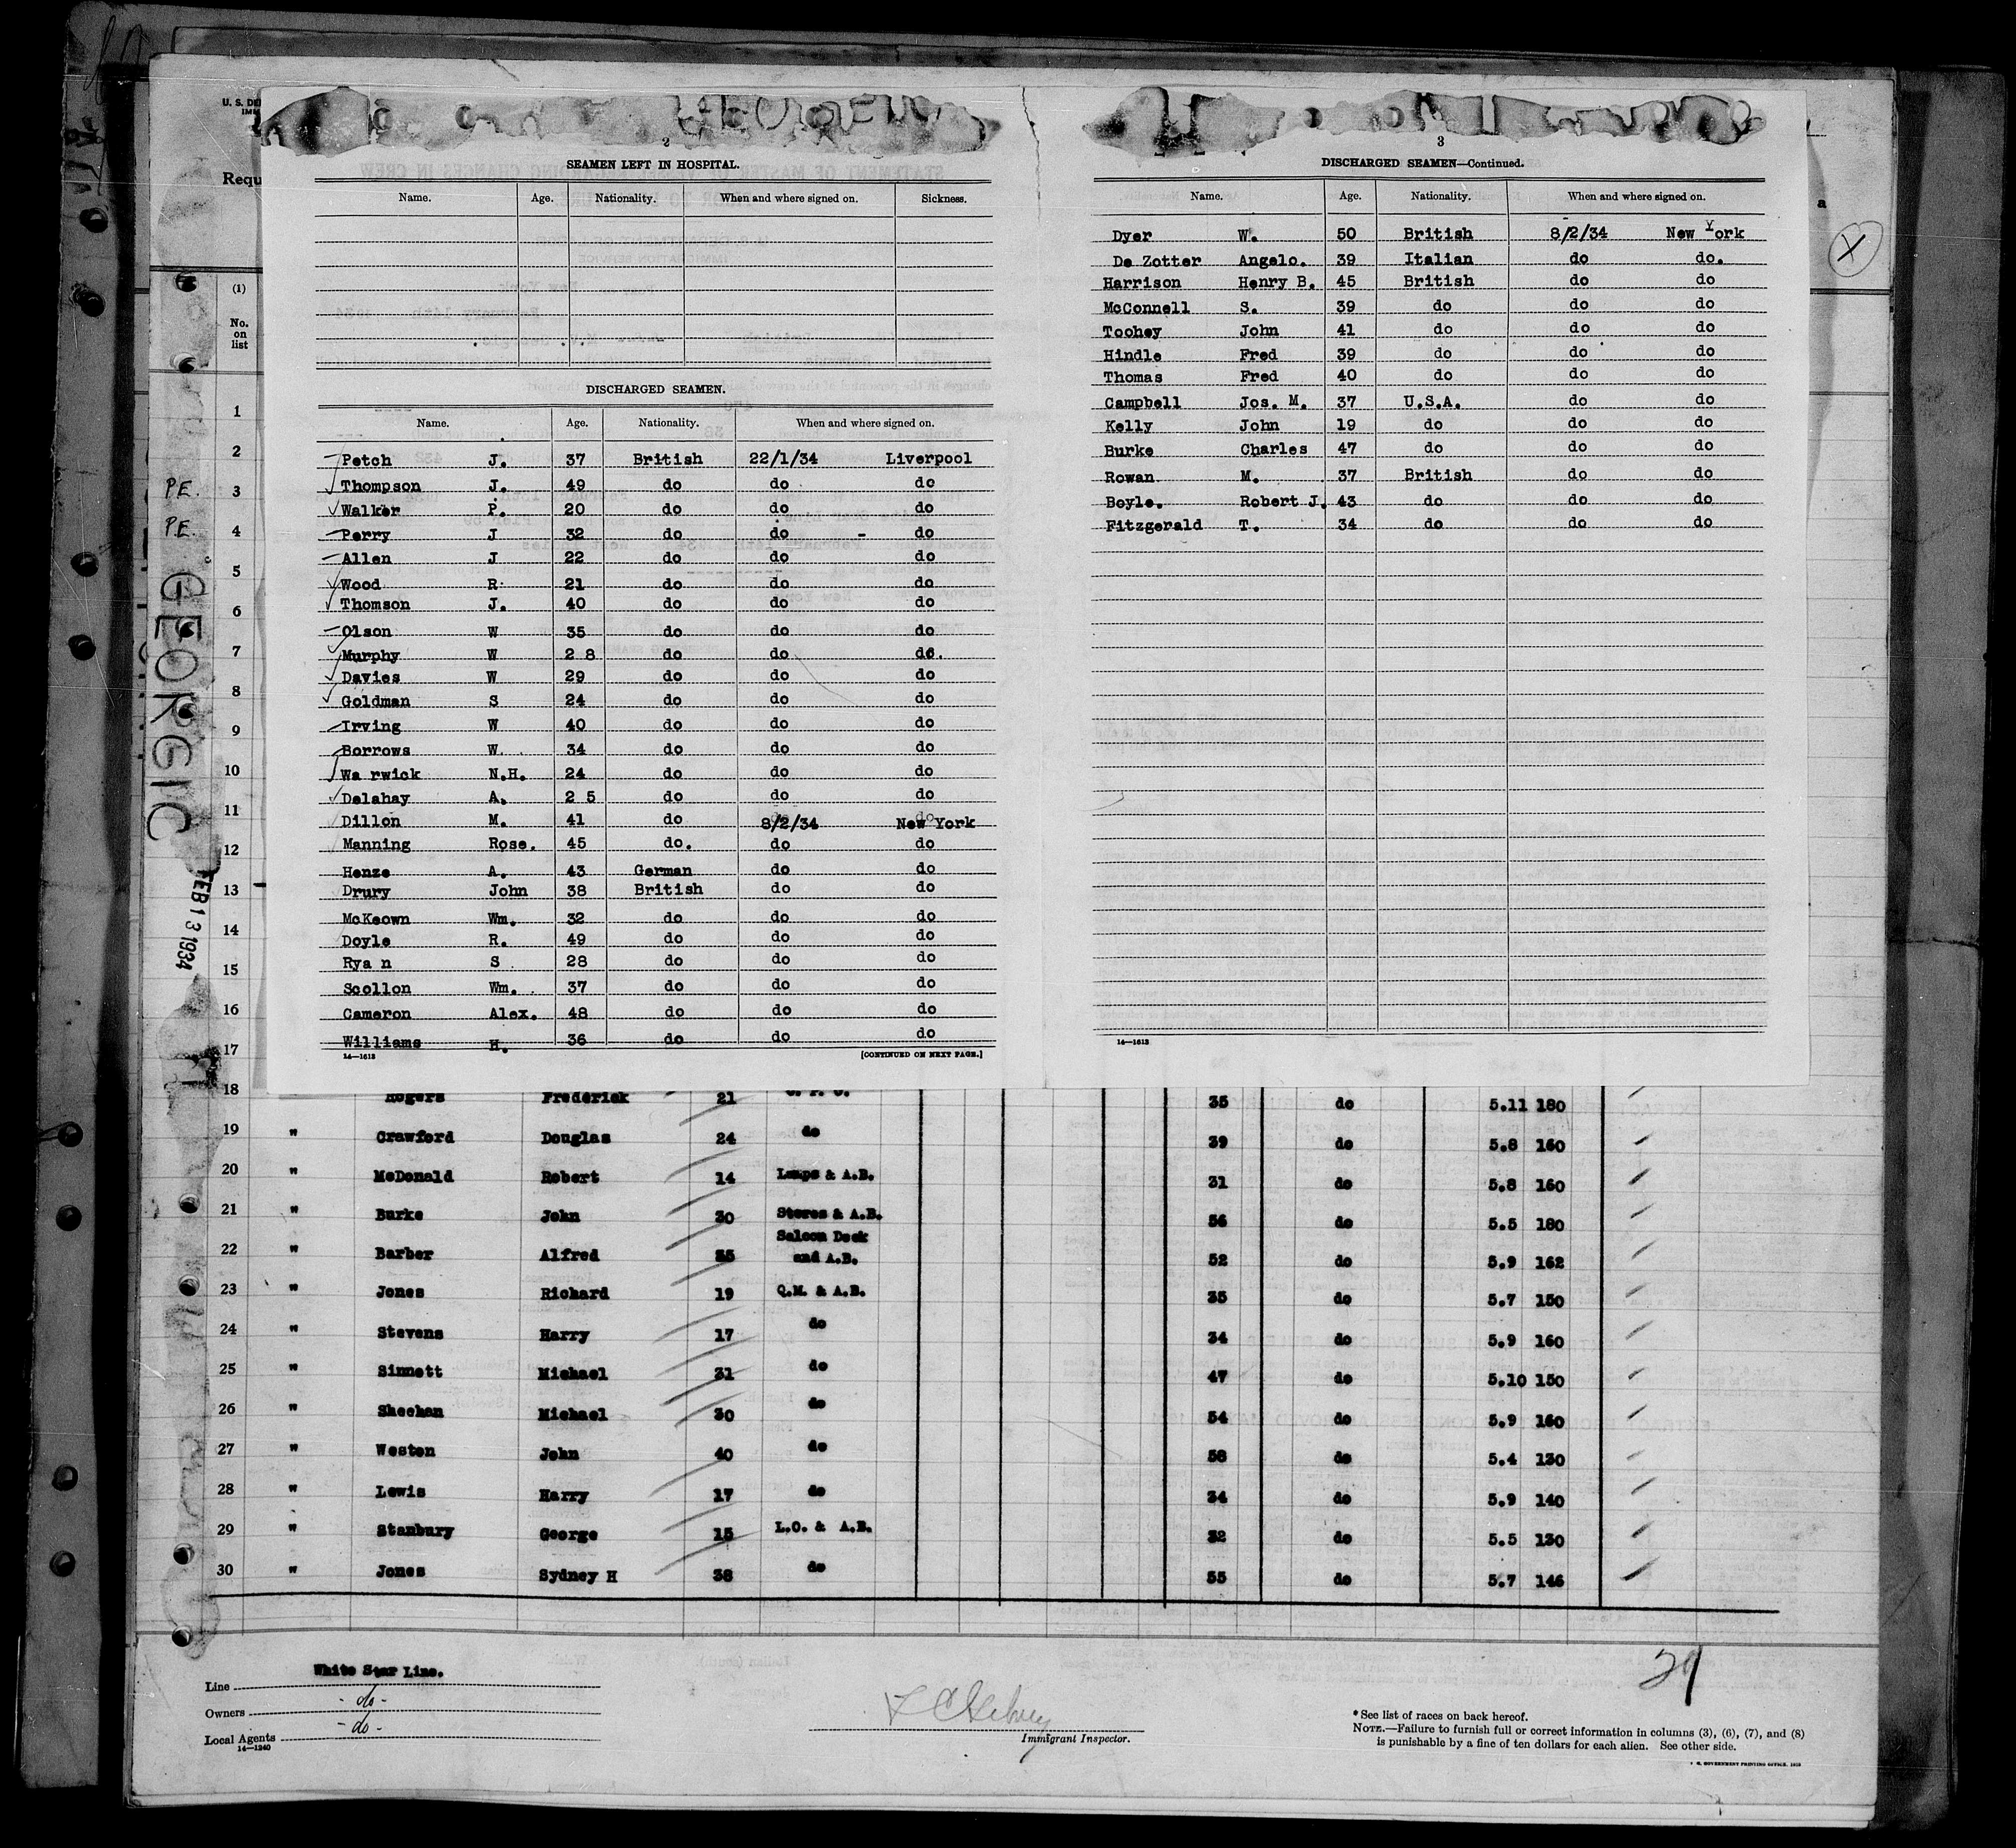 U. S. DE
IMM
Requ
(1)
No.
on
list
2
SEAMEN LEFT IN HOSPITAL.
Name. Age. Nationality. When and where signed on. Sickness.
DISCHARGED SEAMEN.
Name. Age. Nationality. When and where signed on.
Petch J. 37 British 22/1/34 Liverpool
Thompson J. 49 do do do
Walker P. 20 do do do
Perry J 32 do do - do
Allen J 22 do do do
Wood R 21 do do do
Thomson J. 40 do do do
Olson W 35 do do do
Murphy W 2 8 do do do.
Davies W 29 do do do
Goldman S 24 do do do
Irving W 40 do do do
Borrows W. 34 do do do
Wa rwick N.H. 24 do do do
Delahay A. 2 5 do do do
Dillon M. 41 do 8/2/34 New York
Manning Rose. 45 do. do do
Henze A. 43 German do do
Drury John 38 British do do
McKeown Wm. 32 do do do
Doyle R. 49 do do do
Rya n S 28 do do do
Scollon Wm. 37 do do do
Cameron Alex. 48 do do do
Williams H. 36 do do do
14—1613 [CONTINUED ON NEXT PAGE.]
3
DISCHARGED SEAMEN—Continued.
Name. Age. Nationality. When and where signed on.
Dyer W. 50 British 8/2/34 New York
De Zotter Angelo. 39 Italian do do.
Harrison Henry B. 45 British do do
McConnell S. 39 do do do
Toohey John 41 do do do
Hindle Fred 39 do do do
Thomas Fred 40 do do do
Campbell Jos. M. 37 U.S.A. do do
Kelly John 19 do do do
Burke Charles 47 do do do
Rowan M. 37 British do do
Boyle. Robert J. 43 do do do
Fitzgerald T. 34 do do do
14—1613
a
X
1
2
P.E. 3
P.E. 4
5
6
7
8
9
10
11
12
13
14
15
16
17
GEORGIC
FEB 13 1934
18 Rogers Frederick 21 35 do 5.11 180
19 " Crawford Douglas 24 do 39 do 5.8 160
20 " McDonald Robert 14 Lamps & A.B. 31 do 5.8 160
21 " Burke John 30 Stores & A.B. 56 do 5.5 180
22 " Barber Alfred 35 Saloon Deck and A.B. 52 do 5.9 162
23 " Jones Richard 19 Q.M. & A.B. 35 do 5.7 150
24 " Stevens Harry 17 do 34 do 5.9 160
25 " Sinnett Michael 31 do 47 do 5.10 150
26 " Sheehan Michael 30 do 54 do 5.9 160
27 " Weston John 40 do 58 do 5.4 130
28 " Lewis Harry 17 do 34 do 5.9 140
29 " Stanbury George 15 L.O. & A.B. 32 do 5.5 130
30 " Jones Sydney H 38 do 55 do 5.7 146
Line White Star Line.
Owners - do -
Local Agents - do -
14—1240
Immigrant Inspector.
29
* See list of races on back hereof.
NOTE.—Failure to furnish full or correct information in columns (3), (6), (7), and (8)
is punishable by a fine of ten dollars for each alien. See other side.